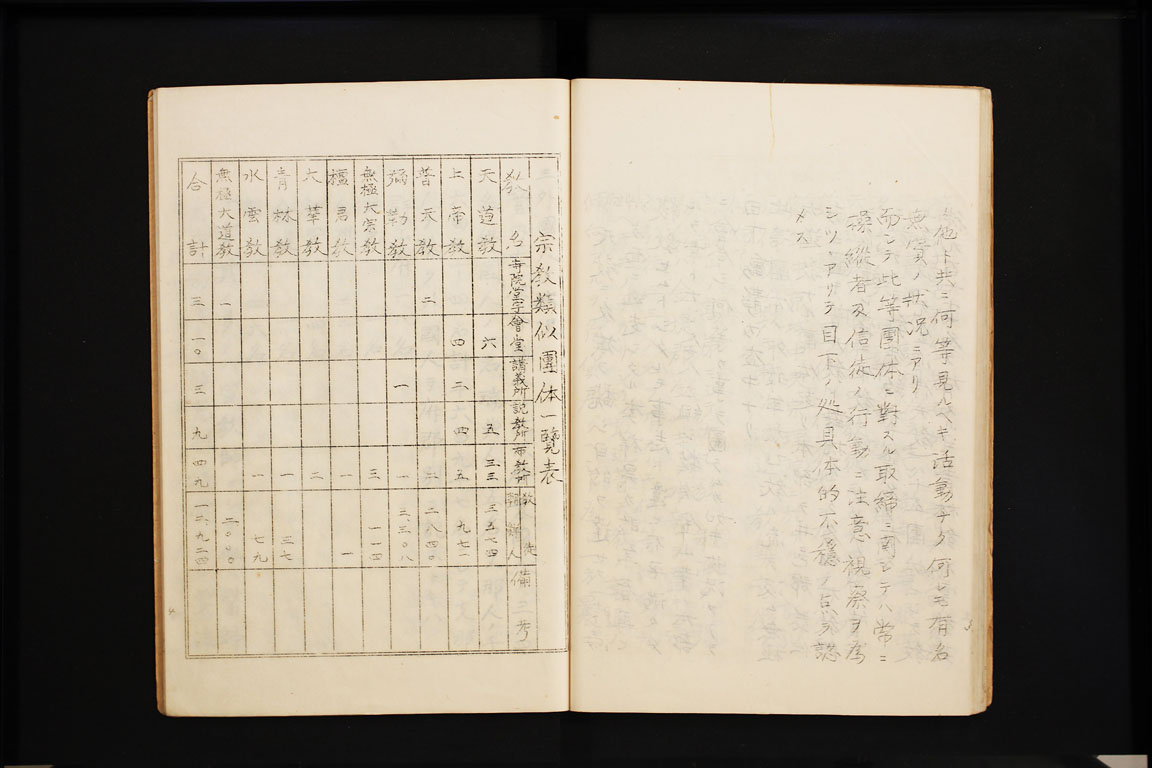 他ト共ニ何等見ルベキ活動ナク何レモ有名
無実ノ状況ニアリ
而シテ此等團体ニ對スル取締ニ関シテハ常ニ
操縦者及信徒ノ行動ニ注意視察ヲ為
シツヽアリテ目下ノ処具体的不穏ノ点ヲ認
メス
宗教類似團体一覽表
教名 寺院堂宇 會堂 講義所 説教所 布教所 教徒 朝鮮人 備考
天道教 六 五 三三 三五七四
上帝教 四 二 四 五 九七一
普天教 二 二八四〇
弥勒教 一 一 三、三〇八
無極大宗教 三 一一四
檀君教 一 一
大華教 二
青林教 一 三七
水雲教 一 七九
無極大道教 一 二〇〇〇
合計 三 一〇 三 九 四九 一二、九二四